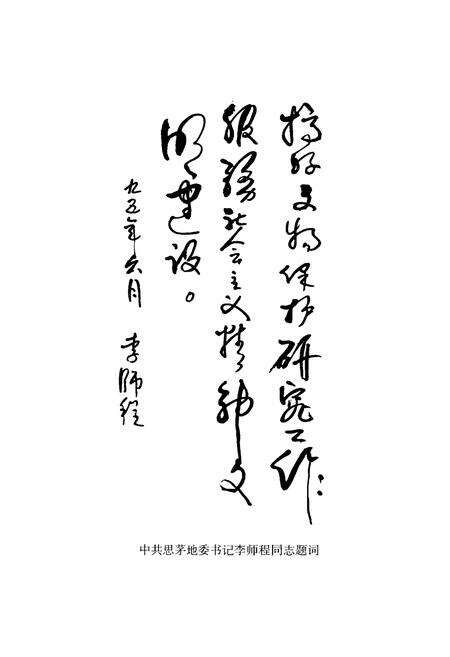 搞好文物保护研究工作
服务社会主义精神文
明建设。
九五年六月 李师程
中共思茅地委书记李师程同志题词